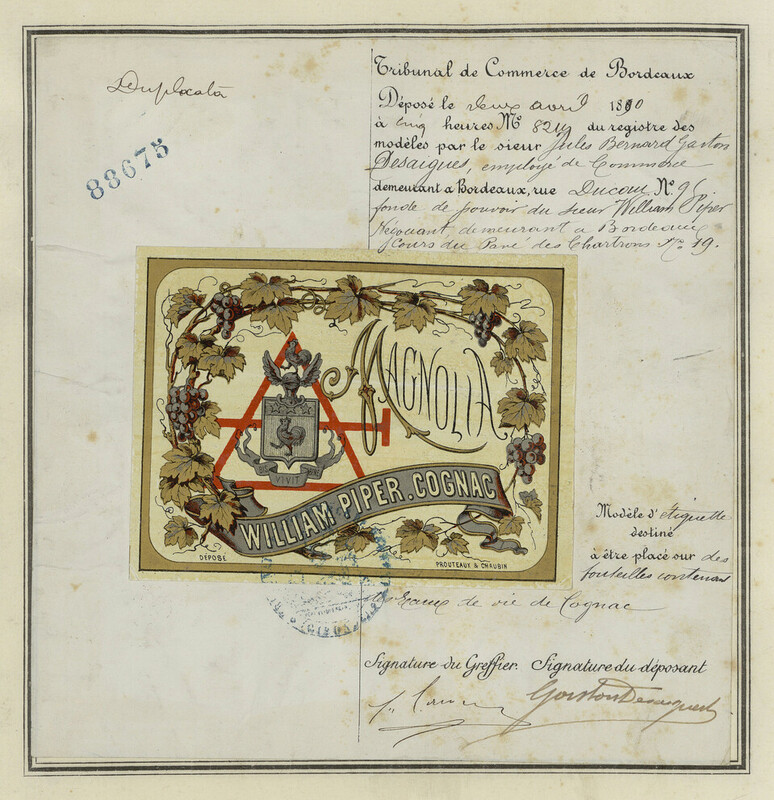 Duplicata
88675
Tribunal de Commerce de Bordeaux
Déposé le deux avril 1890
à cinq heures No du registre des
modèles par le sieur Jules Bernard Gaston
Desaigues, employé de Commerce
demeurant a Bordeaux, rue Ducau No
fondé de pouvoir du sieur William Piper
Négociant demeurant a Bordeaux
Cours du Pavé des Chartrons No. 19.
MAGNOLIA
VIVIT
WILLIAM PIPER.COGNAC
DÉPOSÉ
PROUTEAUX & CHAUBIN
Modèle d'étiquette
destiné
à être placé sur des
bouteilles contenant
des Eaux de vie de Cognac
Signature du Greffier. Signature du déposant
Gaston Desaigues